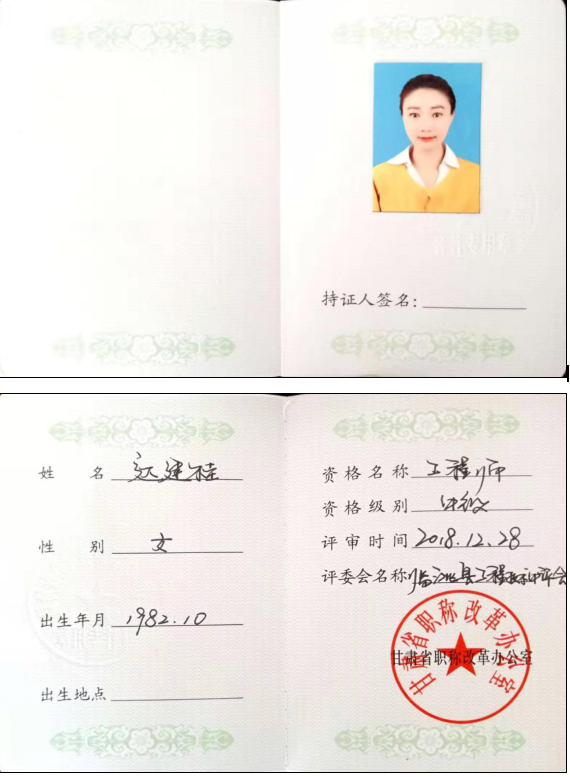 持证人签名：
姓 名
性 别 女
出生年月 1982.10
出生地点
资格名称 工程师
资格级别 中级
评审时间 2018.12.28
评委会名称 临洮县工程
甘肃省职称改革办公室
甘肃省职称改革办公室